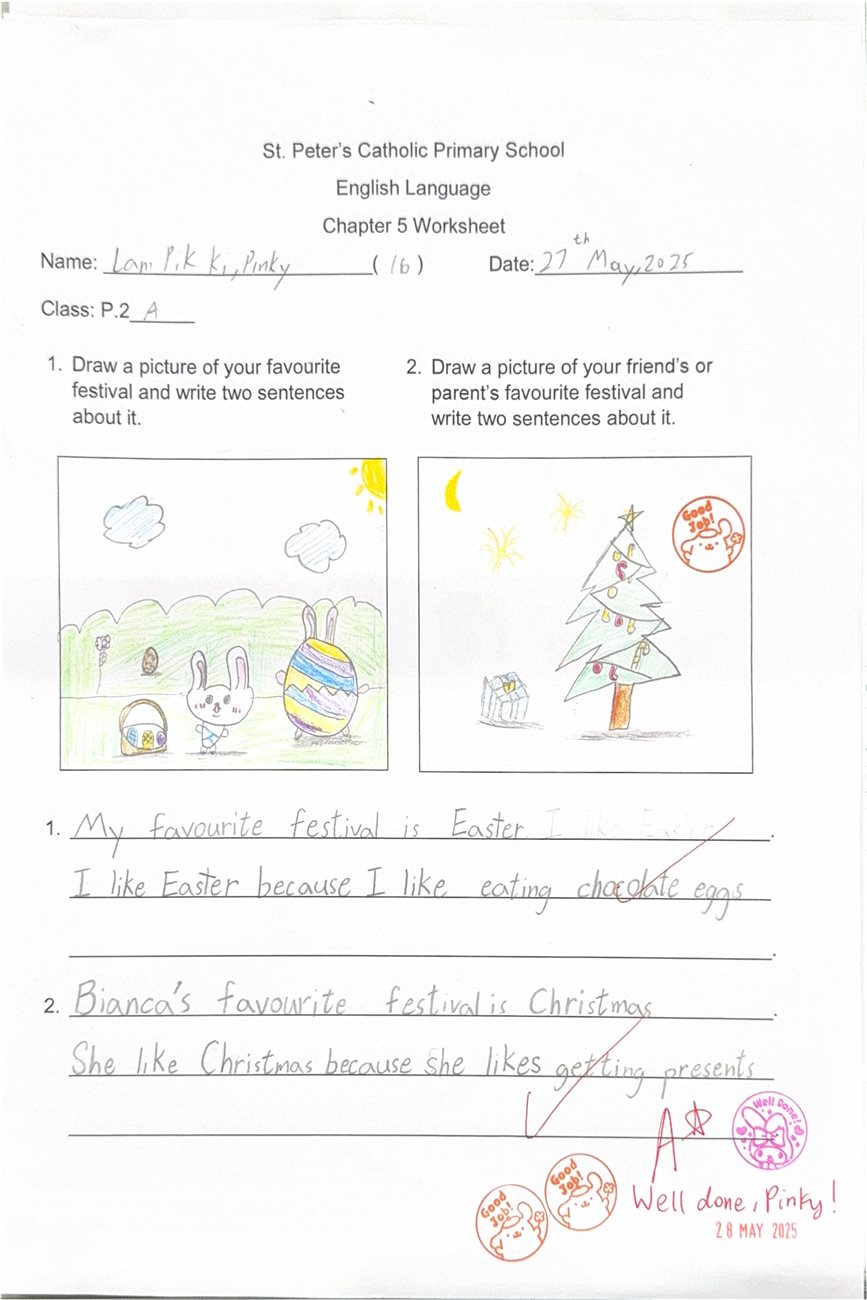 St. Peter's Catholic Primary School
English Language
Chapter 5 Worksheet
Name: Lam Pik Ki, Pinky (16) Date: 27th May, 2025
Class: P.2 A
1. Draw a picture of your favourite
festival and write two sentences
about it.
2. Draw a picture of your friend's or
parent's favourite festival and
write two sentences about it.
Good Job!
1. My favourite festival is Easter. I like Easter.
I like Easter because I like eating chocolate eggs
.
2. Bianca's favourite festival is Christmas.
She like Christmas because she likes getting presents
A
Well Done!
Good Job!
Good Job!
Well done, Pinky!
28 MAY 2025